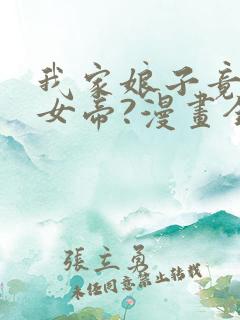 我家娘子竟
女帝?漫畫全
張立勇
未經同意禁止轉載